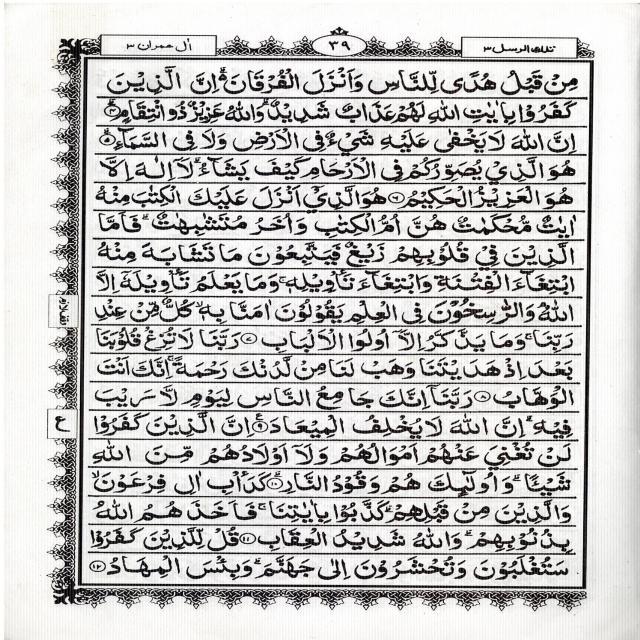 تلك الرسل ٣
٣٩
اٰل عمران ٣
مِنْ قَبْلُ هُدًى لِّلنَّاسِ وَاَنْزَلَ الْفُرْقَانَ ۗ اِنَّ الَّذِيْنَ
كَفَرُوْا بِاٰيٰتِ اللّٰهِ لَهُمْ عَذَابٌ شَدِيْدٌ ۗ وَاللّٰهُ عَزِيْزٌ ذُو انْتِقَامٍ ۝٤
اِنَّ اللّٰهَ لَا يَخْفٰى عَلَيْهِ شَيْءٌ فِى الْاَرْضِ وَلَا فِى السَّمَآءِ ۝٥
هُوَ الَّذِيْ يُصَوِّرُكُمْ فِى الْاَرْحَامِ كَيْفَ يَشَآءُ ۗ لَآ اِلٰهَ اِلَّا
هُوَ الْعَزِيْزُ الْحَكِيْمُ ۝٦ هُوَ الَّذِيْٓ اَنْزَلَ عَلَيْكَ الْكِتٰبَ مِنْهُ
اٰيٰتٌ مُّحْكَمٰتٌ هُنَّ اُمُّ الْكِتٰبِ وَاُخَرُ مُتَشٰبِهٰتٌ ۗ فَاَمَّا
الَّذِيْنَ فِيْ قُلُوْبِهِمْ زَيْغٌ فَيَتَّبِعُوْنَ مَا تَشَابَهَ مِنْهُ
ابْتِغَآءَ الْفِتْنَةِ وَابْتِغَآءَ تَأْوِيْلِهٖ ۚ وَمَا يَعْلَمُ تَأْوِيْلَهٗٓ اِلَّا
اللّٰهُ وَالرّٰسِخُوْنَ فِى الْعِلْمِ يَقُوْلُوْنَ اٰمَنَّا بِهٖ ۙ كُلٌّ مِّنْ عِنْدِ
رَبِّنَا ۚ وَمَا يَذَّكَّرُ اِلَّآ اُولُوا الْاَلْبَابِ ۝٧ رَبَّنَا لَا تُزِغْ قُلُوْبَنَا
بَعْدَ اِذْ هَدَيْتَنَا وَهَبْ لَنَا مِنْ لَّدُنْكَ رَحْمَةً ۚ اِنَّكَ اَنْتَ
الْوَهَّابُ ۝٨ رَبَّنَآ اِنَّكَ جَامِعُ النَّاسِ لِيَوْمٍ لَّا رَيْبَ
فِيْهِ ۗ اِنَّ اللّٰهَ لَا يُخْلِفُ الْمِيْعَادَ ۝٩ اِنَّ الَّذِيْنَ كَفَرُوْا
ع
لَنْ تُغْنِيَ عَنْهُمْ اَمْوَالُهُمْ وَلَآ اَوْلَادُهُمْ مِّنَ اللّٰهِ
شَيْئًا ۗ وَاُولٰٓئِكَ هُمْ وَقُوْدُ النَّارِ ۝١٠ كَدَأْبِ اٰلِ فِرْعَوْنَ ۙ
وَالَّذِيْنَ مِنْ قَبْلِهِمْ ۗ كَذَّبُوْا بِاٰيٰتِنَا ۚ فَاَخَذَهُمُ اللّٰهُ
بِذُنُوْبِهِمْ ۗ وَاللّٰهُ شَدِيْدُ الْعِقَابِ ۝١١ قُلْ لِّلَّذِيْنَ كَفَرُوْا
سَتُغْلَبُوْنَ وَتُحْشَرُوْنَ اِلٰى جَهَنَّمَ ۗ وَبِئْسَ الْمِهَادُ ۝١٢